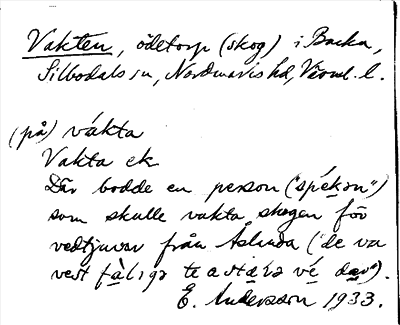 Vakten, ödetorp (skog) i Backa,
Silbodals sn, Nordmarks hd, Värml. l.
(på) vákta
Vakta ek
Där bodde en person ("spékən")
som skulle vakta skogen för
vedtjuvar från Åslnda ("de va
vest fàligə te a stæ̀lə vé dær").
E. Andersson 1933.